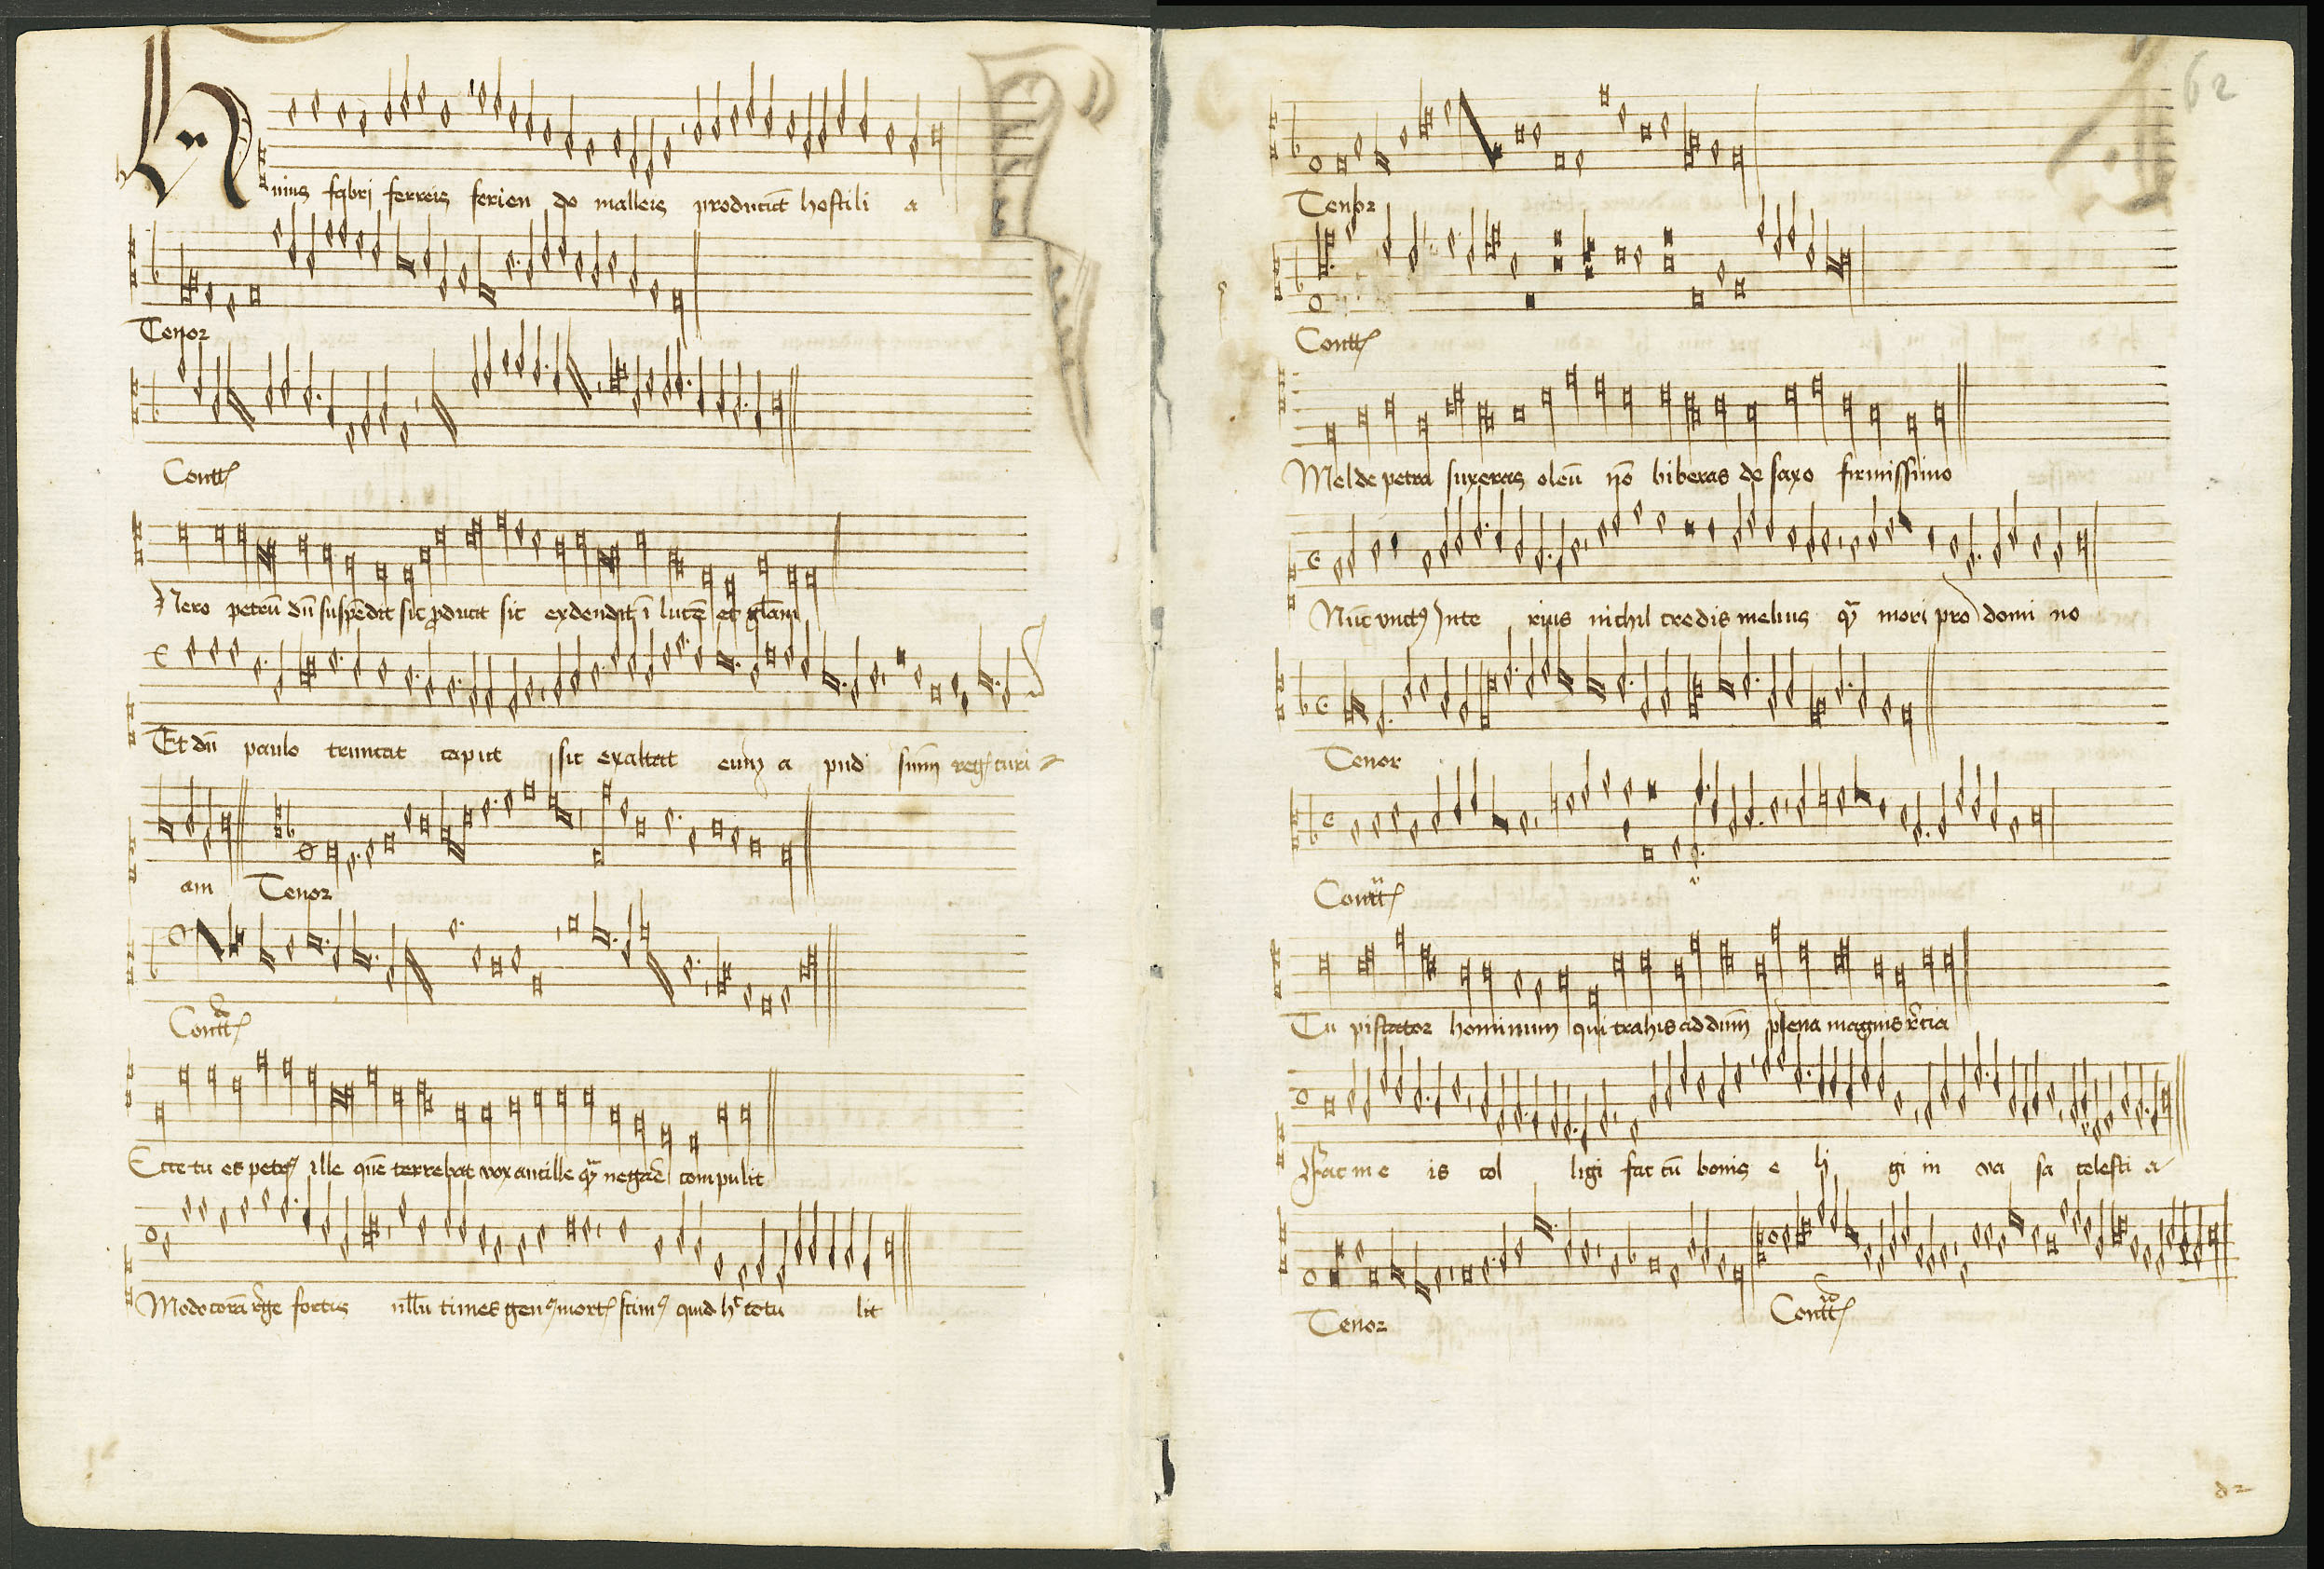 Huius fabri ferreis ferien do malleis producūt hostili a
Tenor
Contt
Nero petrū dū suspēdit sit producit sit extendit ī lucē et glam
Et dū paulo truncat caput sit exaltat eum a pud sum̄ reg curi
am Tenor
Contt
Ecce tu es petrꝰ ille quē terrebat vox ancille negare compulit
Modo corā rege fortis nllū times genꝰ mort scimꝰ quid totu lit
62
Tenor
Contt
Mel de petra suxeras oleū nō biberas de saxo firmissimo
Nūc vnctꝰ Inte rius nichil credis melius qͣ mori pro domi no
Tenor
Contt
Tu piscator hominum qui trahis ad dūm plena magnis rcia
Fac me is col ligi fac cū bonis e li gi in va sa celesti a
Tenor Contt
d2